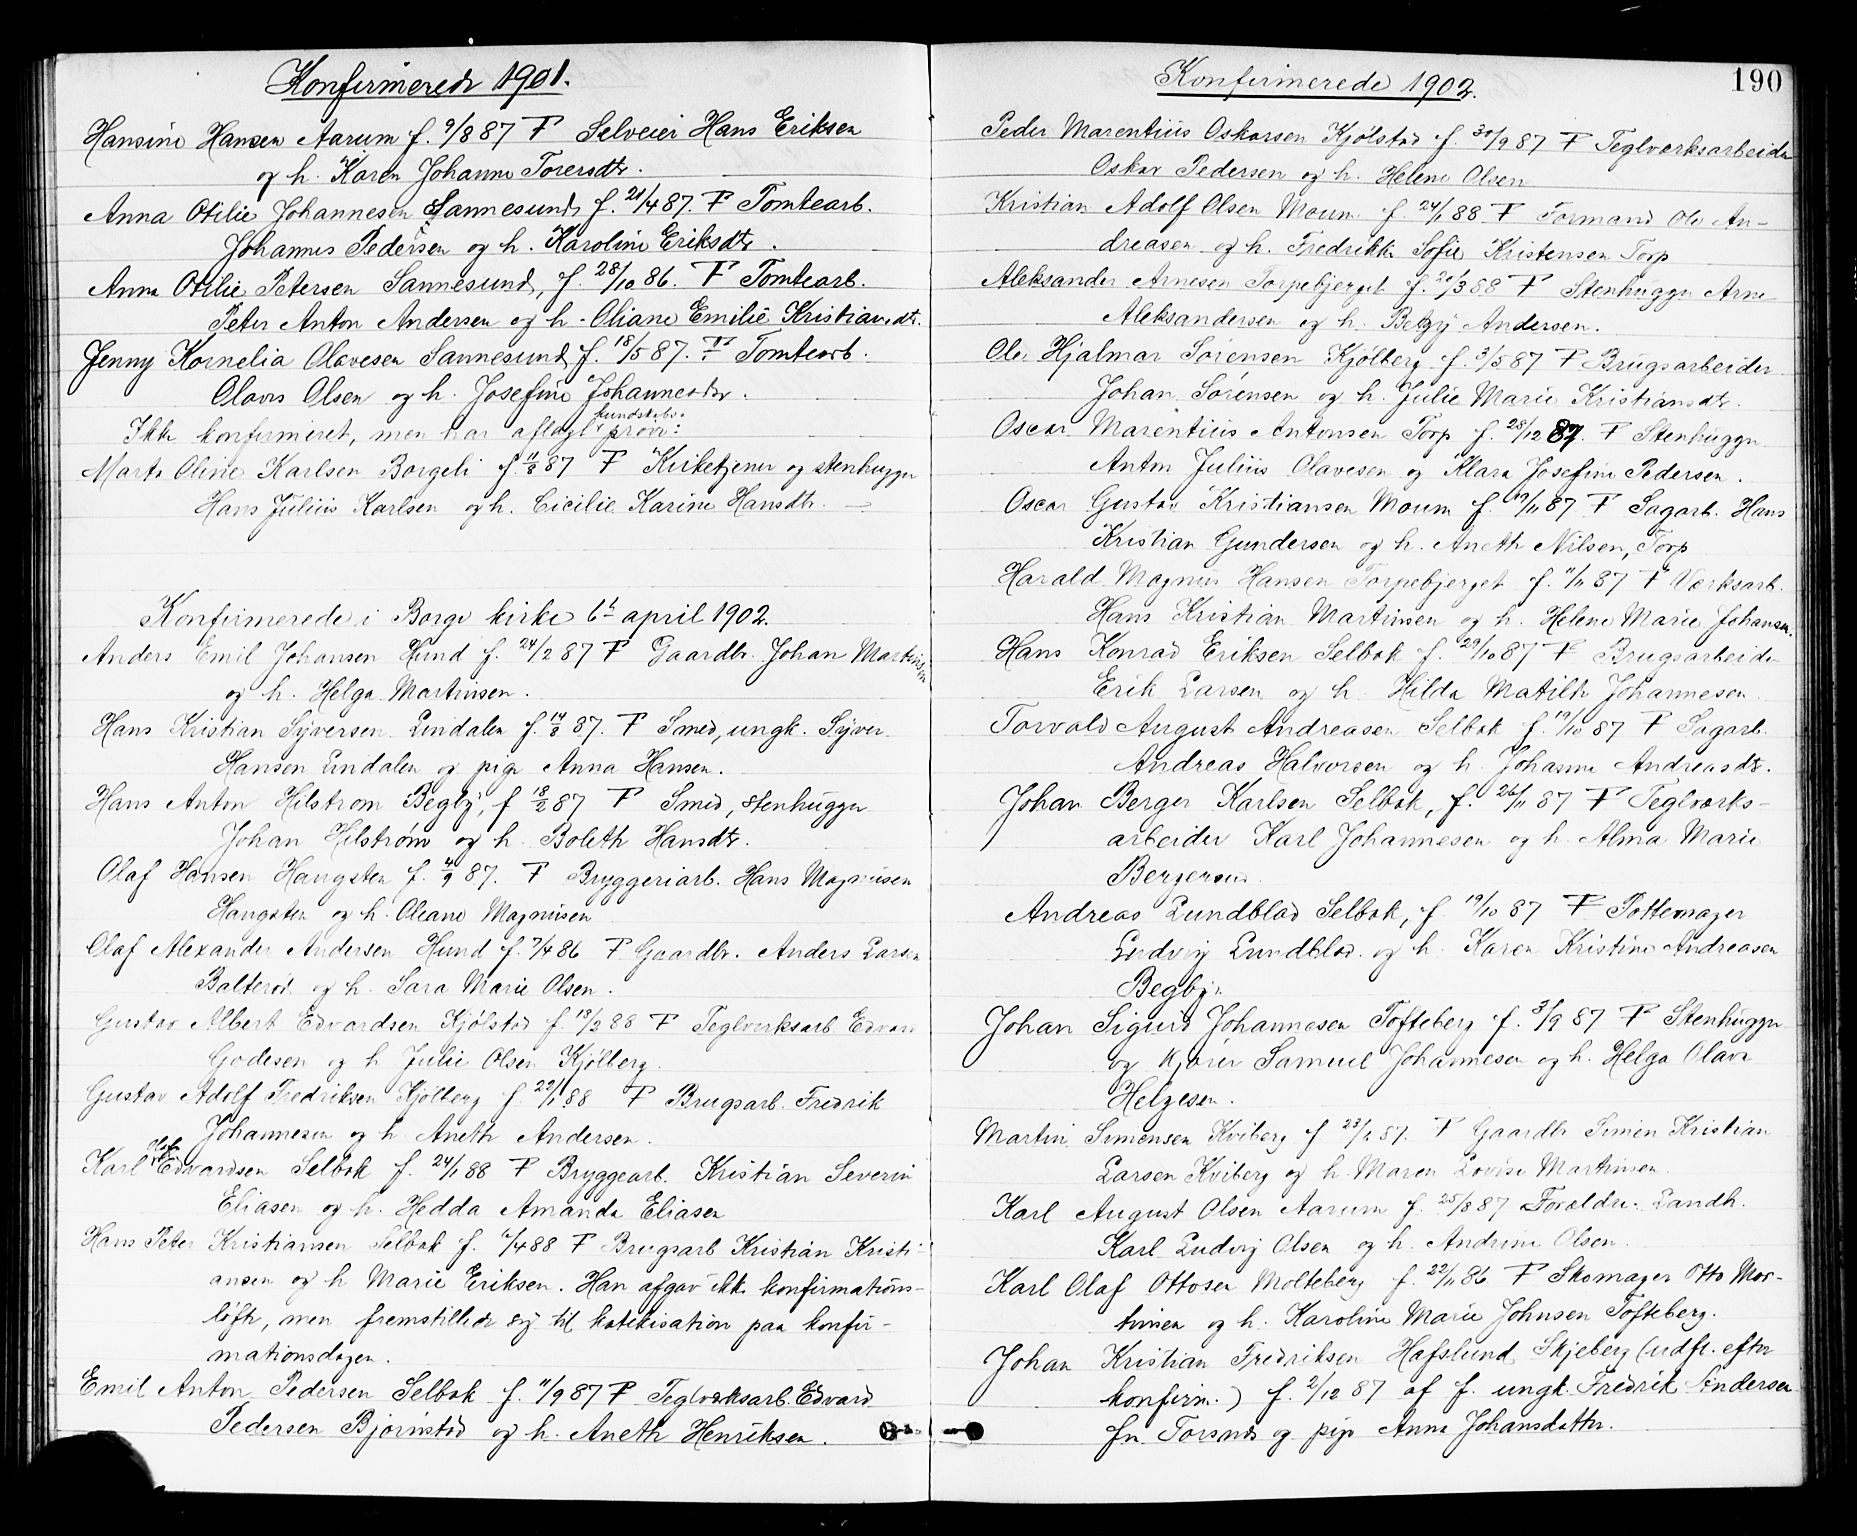 Konfirmerede 1901.
Hansine Hansen Aarum f. 9/8 87 F Selveier Hans Eriksen
og h. Karen Johanne Torersdtr.
Anna Otilie Johannesen Sannesund, f. 21/4 87. F Tomtearb.
Johannes Pedersen og h. Karoline Eriksdtr.
Anna Otilie Petersen Sannesund, f. 28/10 86. F Tomtearb.
Peter Anton Andersen og h. Oliane Emilie Kristiansdtr.
Jenny Kornelia Olavesen Sannesund f. 18/5 87. F Tomtearb.
Olaves Olsen og h. Josefine Johannesdtr.
Ikke konfirmeret, men har aflagt kundskabs-prøve:
Marte Oline Karlsen Borgeli f. 11/8 87 F Kirketjener og stenhugger
Hans Julius Karlsen og h. Cicilie Karine Hansdtr. —
Konfirmerede i Borge kirke 6t april 1902.
Anders Emil Johansen Hund f. 24/2 87 F Gaardbr. Johan Martinsen
og h. Helga Martinsen.
Hans Kristian Syversen Lindalen f. 14/8 87. F Smed, ungk. Syver
Hansen Lindalen og pige Anna Hansen.
Hans Anton Hilstrøm Begby, f 18/2 87 F Smed, stenhugger
Johan Hilstrøm og h. Bolette Hansdtr.
Olaf Hansen Haugsten f. 4/9 87. F Bryggeriarb. Hans Magnusen
Haugsten og h. Oleane Magnusen
Olaf Alexander Andersen Hund f. 7/4 86 F Gaardbr. Anders Larsen
Balterød og h. Sara Marie Olsen.
Gustav Albert Edvardsen Kjølstad f. 13/2 88 F Teglverksarb Edvard
Godesen og h Julie Olsen Kjølberg.
Gustav Adolf Fredriksen Kjølberg f. 22/1 88 F Brugsarb. Fredrik
Johannesen og h. Anette Andersen.
Karl Edvardsen Selbak f. 24/1 88 F Bryggearb. Kristian Severin
Eliasen og h. Hedda Amanda Eliasen
Hans Peter Kristiansen Selbak f. /4 88 F Brugsarb Kristian Kristi-
ansen og h Marie Eriksen. Han afgav ikke konfirmations-
løfte, men fremstillede sig til katekisation paa konfir-
mationsdagen.
Emil Anton Pedersen Selbak f. 11/9 87 F Teglværksarb. Edvard
Pedersen Bjørnstad og h. Anette Henriksen.
Konfirmerede 1902.
190
Peder Marentius Oskarsen Kjølstad f. 30/9 87 F Teglværksarbeider
Oskar Pedersen og h. Helene Olsen
Kristian Adolf Olsen Moum f. 24/1 88 F Formand Ole An-
dreasen og h. Fredrikke Sofie Kristensen Torp
Aleksander Arnesen Torpebjerget f. 20/3 88 F Stenhugger Arne
Aleksandersen og h. Betzy Andersen.
Ole Hjalmar Sørensen Kjølberg f. 3/5 87 F Brugsarbeider
Johan Sørensen og h. Julie Marie Kristiansdtr.
Oscar Marentius Antonsen Torp f. 28/12 87. F Stenhugger
Anton Julius Olavesen og Klara Josefine Pedersen.
Oscar Gustav Kristiansen Moum f. 19/11 87 F Sagarb. Hans
Kristian Gundersen og h. Anette Nilsen, Torp
Harald Magnus Hansen Torpebjerget f. 11/11 87 F Værksarb.
Hans Kristian Martinsen og h. Helene Marie Johansen.
Hans Konrad Eriksen Selbak f. 29/10 87 F Brugsarbeider
Erik Larsen og h. Hilda Matilde Johannesen
Torvald August Andreasen Selbak f. 19/10 87 F Sagarb.
Andreas Halvorsen og h. Johanne Andreasdtr.
Johan Berger Karlsen Selbak, f. 26/11 87 F Teglværks-
arbeider Karl Johannesen og h. Alma Marie
Bergersen.
Andreas Lundblad Selbak, f. 19/10 87 F Pottemager
Ludvig Lundblad og h. Karen Kristine Andreasen
Begby.
Johan Sigurd Johannesen Tofteberg f. 3/9 87 F Stenhugger
og Kjører Samuel Johannesen og h. Helga Olava
Helgesen.
Martin Simensen Kviberg f 23/ 87. F Gaardbr Simen Kristian
Larsen Kviberg og h. Maren Lovise Martinsen.
Karl August Olsen Aarum f. 25/8 87 Forældre: Landh.
Karl Ludvig Olsen og h. Andrine Olsen.
Karl Olaf Ottosen Molteberg f. 22/11 86 F Skomager Otto Mar-
tinsen og h. Karoline Marie Johnsen Tofteberg.
Johan Kristian Fredriksen Hafslund, Skjeberg (udfl. efter
konfirm.) f. 2/12 87 af f. ungk. Fredrik Andersen
fn. Torsnes og pige Anna Johansdatter.